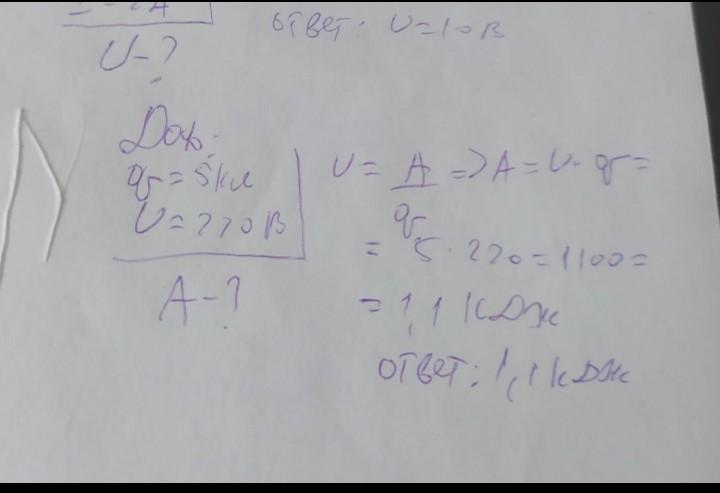 ответ: U=10В
U-?
q=5кл
U=220В
A-?
U= A/q => A=U·q=
= 5·220=1100=
= 1,1 кДж
ответ: 1,1 кДж